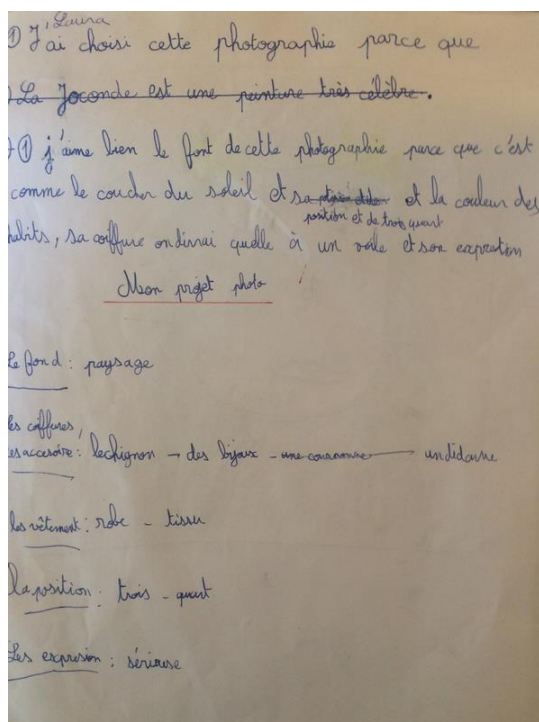 Laura
① J'ai choisi cette photographie parce que
La Joconde est une peinture très célèbre.
① j'aime bien le font de cette photographie parce que c'est
comme le coucher du soleil et sa et la couleur des
position et de trois quart
habits, sa coiffure ondirai quelle à un voile et son expretion
Mon projet photo
Le fond : paysage
les coiffures,
les accesoire : le chignon → des bijoux - une couronne → un
les vêtement : robe - tissu
la position : trois - quart
Les expresion : sérieuse